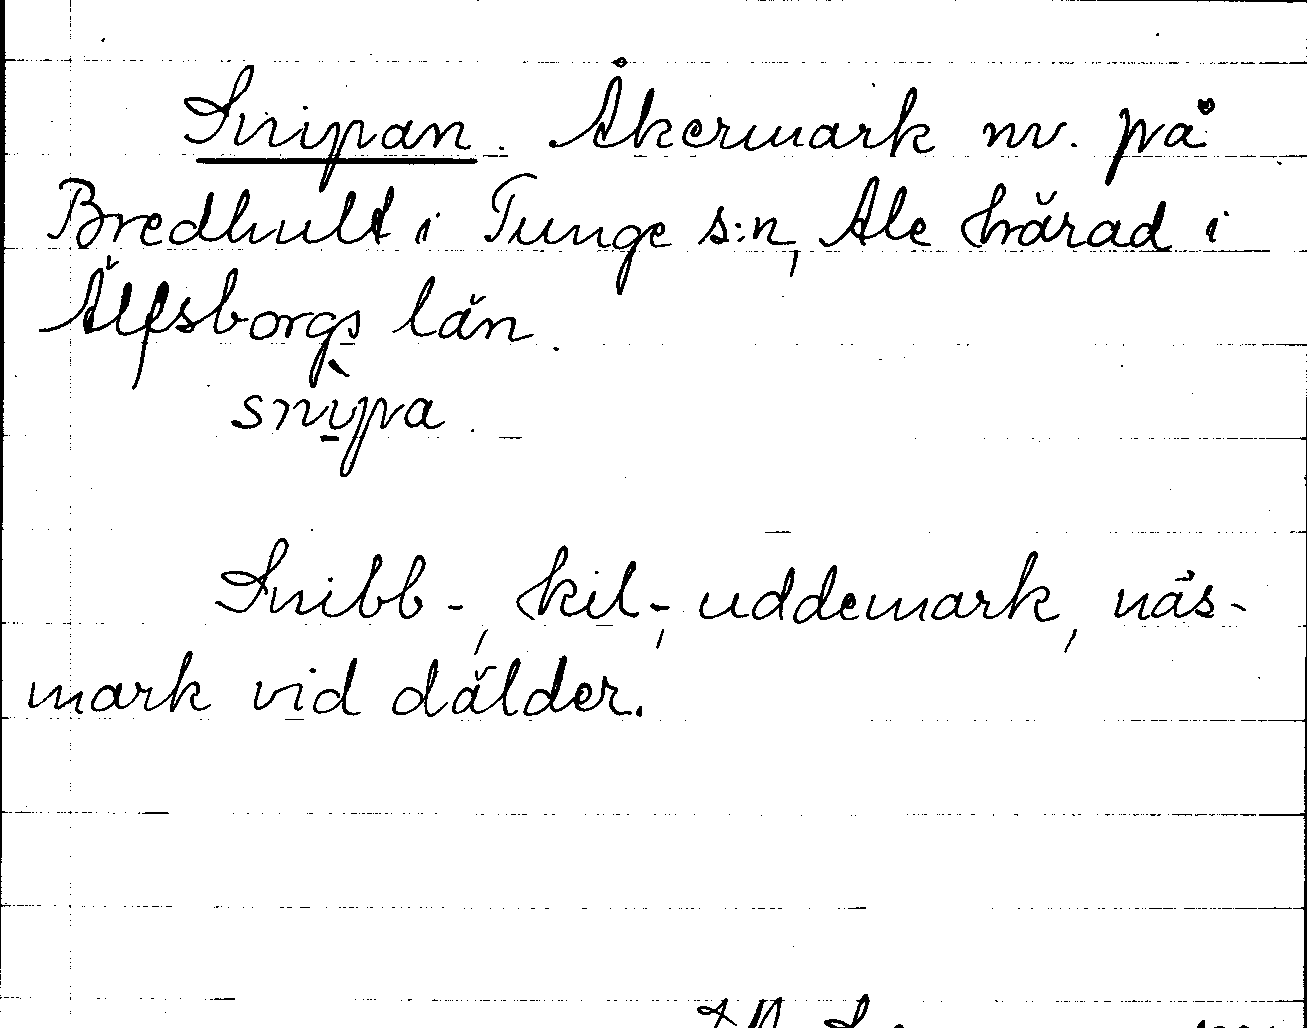 Snipan. Åkermark nv. på
Bredhult i Tunge s:n, Ale härad i
Älfsborgs län.
snìpa.
Snibb-, kil-, uddemark, näs-
mark vid dälder.